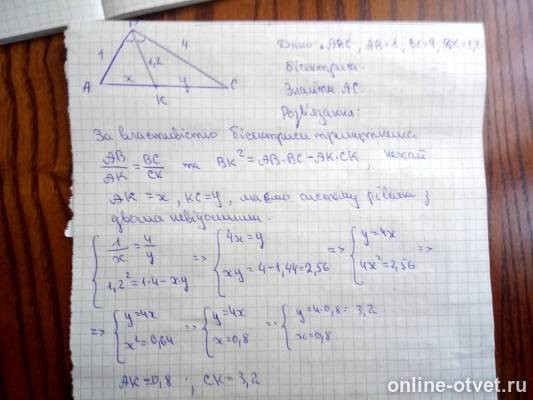 B
1 4
1,2
A x y C
K
Дано: △ABC, AB=1, BC=4, BK=1,2
бісектриса.
Знайти AC.
Розв'язання:
За властивістю бісектриси трикутника
AB/AK = BC/CK та BK² = AB·BC − AK·CK, нехай
AK = x, KC = y, маємо систему рівнянь з
двома невідомими.
{ 1/x = 4/y ; 1,2² = 1·4 − x·y => { 4x = y ; xy = 4 − 1,44 = 2,56 => { y = 4x ; 4x² = 2,56 =>
=> { y = 4x ; x² = 0,64 => { y = 4x ; x = 0,8 => { y = 4·0,8 = 3,2 ; x = 0,8
AK = 0,8 ; CK = 3,2
online-otvet.ru